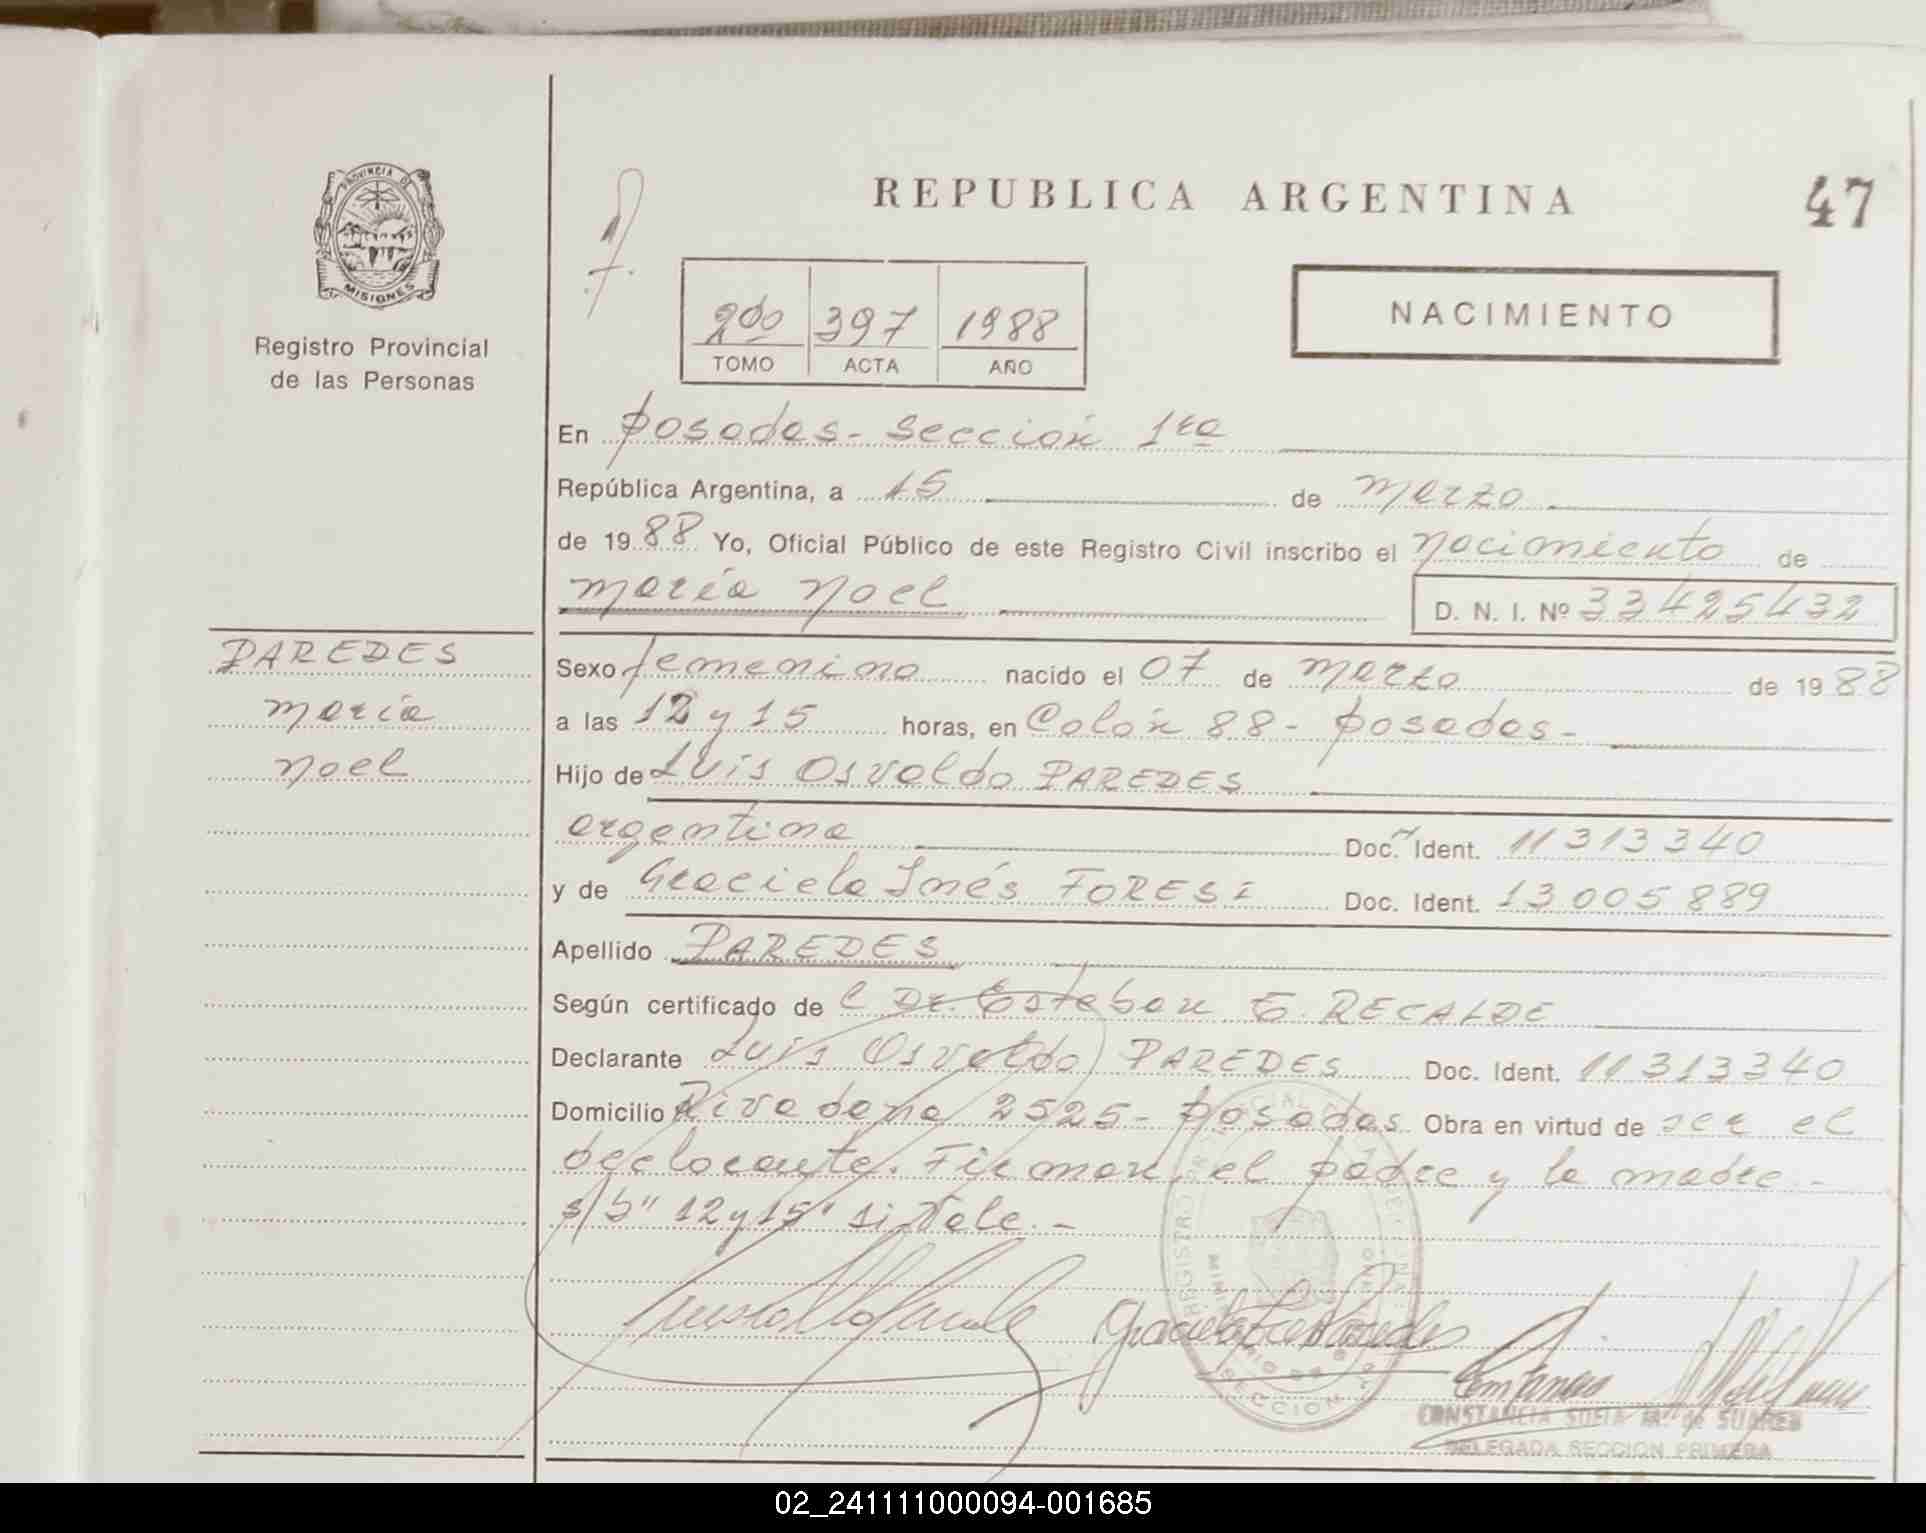 REPUBLICA ARGENTINA
47
PROVINCIA DE
MISIONES
Registro Provincial
de las Personas
2do 397 1988
TOMO ACTA AÑO
NACIMIENTO
En Posadas - Sección 1ra
República Argentina, a 15 de Marzo
de 1988 Yo, Oficial Público de este Registro Civil inscribo el nacimiento de
María Noel
D. N. I. Nº 33425432
PAREDES
María
Noel
Sexo femenino nacido el 07 de Marzo de 1988
a las 12 y 15 horas, en Colón 88 - Posadas -
Hijo de Luis Osvaldo PAREDES
argentina Doc. Ident. 11 313 340
y de Graciela Inés FORESI Doc. Ident. 13 005 889
Apellido PAREDES
Según certificado de l Dr. Esteban E. RECALDE
Declarante Luis Osvaldo PAREDES Doc. Ident. 11 313 340
Domicilio Rivadavia 2525 - Posadas Obra en virtud de ser el
declarante. Firman el padre y la madre. -
s/b " 12 y 15 " si Vale. -
CONSTANCIA SOFIA de SUAREZ
DELEGADA SECCION PRIMERA
02_241111000094-001685